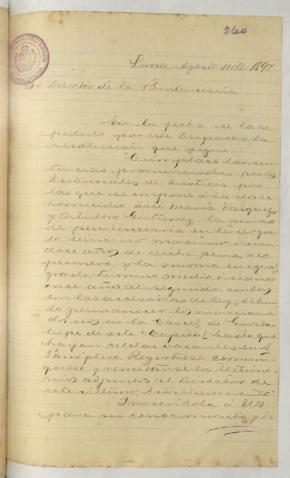 260
Lima, Agosto 11 de 1897
Sr Director de la Penitenciaría
En la fecha se ha ex
pedido por este Despacho la
resolución que sigue:
"Cumplase las sen
tencias pronunciadas por los
Tribunales de Justicia, por
las que se impone á los reos de
homicidio José María Vasquez
y Gutierrez, la pena
de penitenciaría en tercer gra
do, término máximo, ó sean
doce años de dicha pena al
primero, y la misma en igual
grado, término medio, ó sean
once años al segundo, ambos
con las accesorias de ley, debien
do permanecer los menciona
dos reos en la Carcel de Guada
lupe de esta Capital, hasta que
hayan celdas vacantes en el
Panóptico. Regístrese, comuni
quese y remítanse los testimo
nios adjuntos al Director de
este último Establecimiento"
Trascríbola á US.
para su conocimiento y